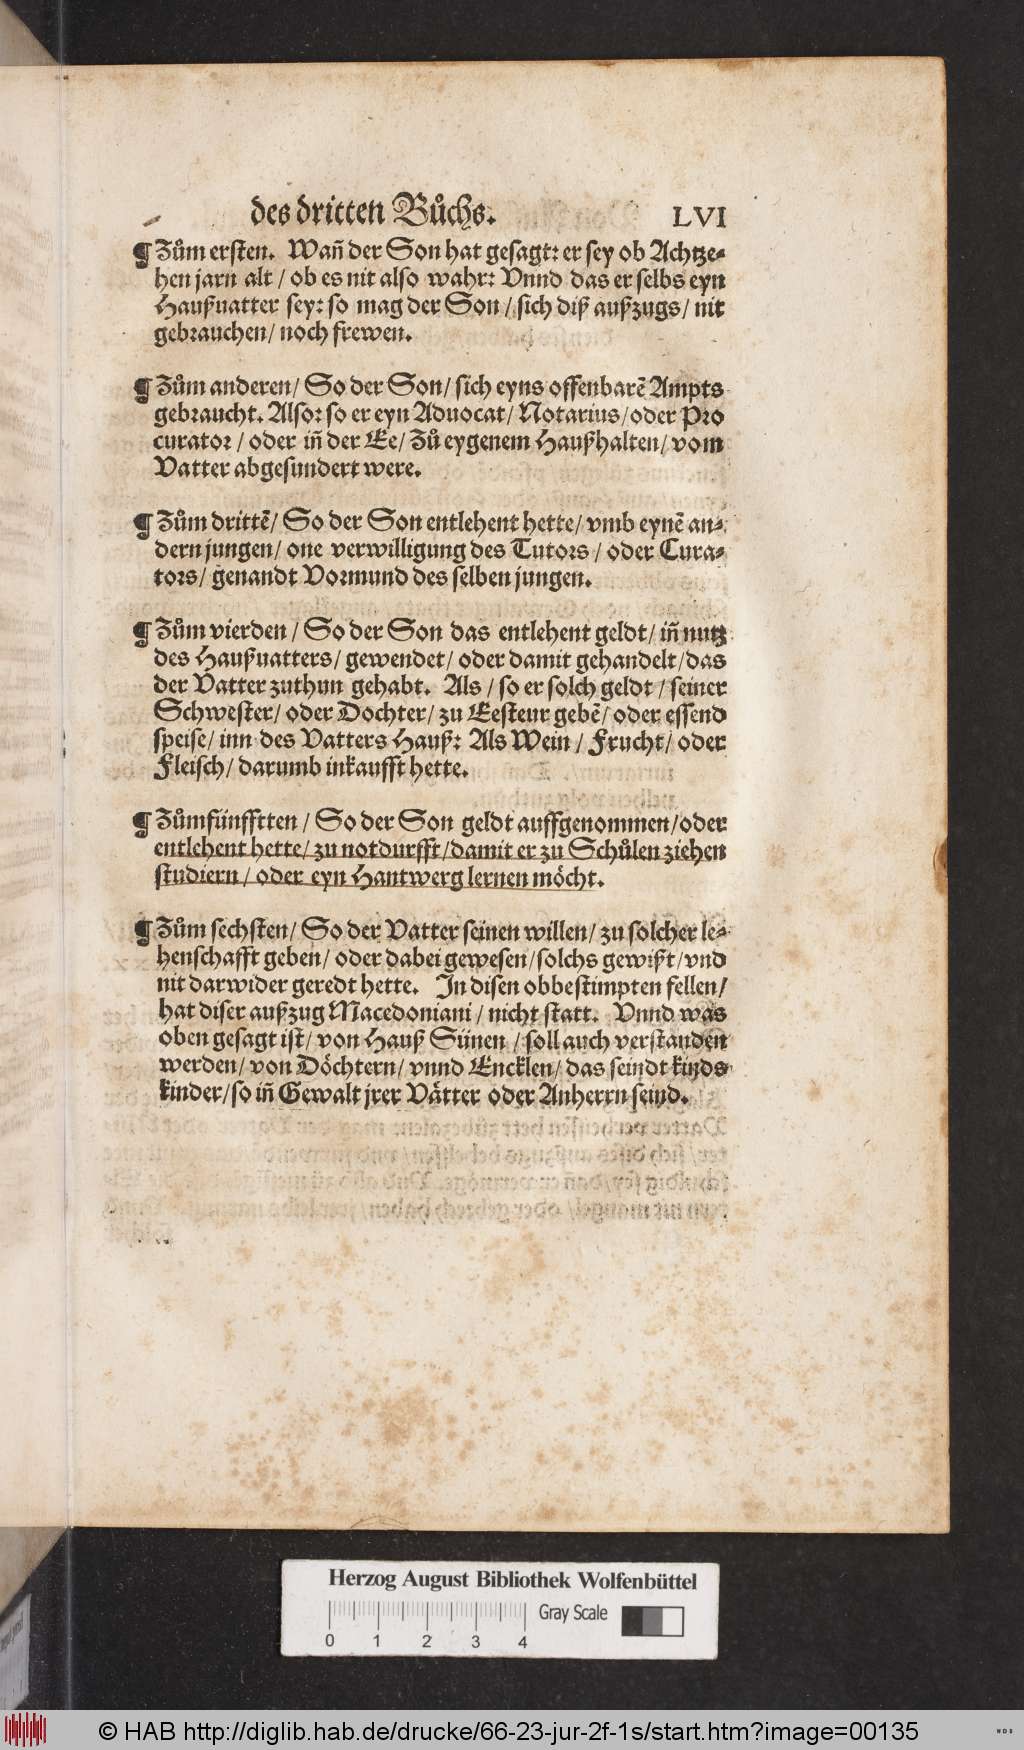 des dritten Bůchs. LVI
¶ Zům ersten. Wañ der Son hat gesagt: er sey ob Achtze-
hen jarn alt / ob es nit also wahr: Vnnd das er selbs eyn
Haußuatter sey: so mag der Son / sich diß außzugs / nit
gebrauchen / noch frewen.
¶ Zům anderen / So der Son / sich eyns offenbarẽ Ampts
gebraucht. Also: so er eyn Aduocat / Notarius / oder Pro
curator / oder iñ der Ee / Zů eygenem Haußhalten / vom
Vatter abgesundert were.
¶ Zům drittẽ / So der Son entlehent hette / vmb eynẽ an-
dern jungen / one verwilligung des Tutors / oder Cura-
tors / genandt Vormund des selben jungen.
¶ Zům vierden / So der Son das entlehent geldt / iñ nutz
des Haußuatters / gewendet / oder damit gehandelt / das
der Vatter zuthun gehabt. Als / so er solch geldt / seiner
Schwester / oder Dochter / zu Eesteur gebẽ / oder essend
speise / inn des Vatters Hauß: Als Wein / Frucht / oder
Fleisch / darumb inkaufft hette.
¶ Zůmfünfftten / So der Son geldt auffgenommen / oder
entlehent hette / zu notdurfft / damit er zu Schůlen ziehen
studiern / oder eyn Hantwerg lernen möcht.
¶ Zům sechsten / So der Vatter seinen willen / zu solcher le-
henschafft geben / oder dabei gewesen / solchs gewißt / vnd
nit darwider geredt hette. In disen obbestimpten fellen /
hat diser außzug Macedoniani / nicht statt. Vnnd was
oben gesagt ist / von Hauß Sünen / soll auch verstanden
werden / von Döchtern / vnnd Encklen / das seindt kinds
kinder / so iñ Gewalt jrer Vätter oder Anherrn seind.
Herzog August Bibliothek Wolfenbüttel
0 1 2 3 4 Gray Scale
© HAB http://diglib.hab.de/drucke/66-23-jur-2f-1s/start.htm?image=00135